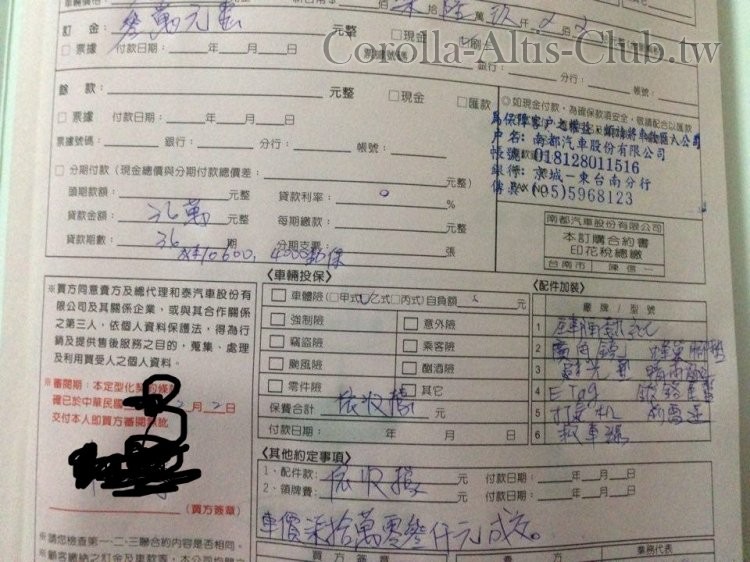 車輛價格
佰 柒 拾 陸 萬 玖 仟
Corolla-Altis-Club.tw
訂 金: 參萬元 元整 □現金 □刷卡
□ 票據 付款日期: 年 月 日 票據號碼: 銀行: 分行: 帳號:
餘 款: 元整 □現金 □匯款
◎如現金付款，為確保款項安全，敬請配合以匯款
為保障客戶之權益，煩請將車款匯入公司
□ 票據 付款日期: 年 月 日
戶名:南都汽車股份有限公司
票據號碼: 銀行: 分行: 帳號:
帳號:018128011516
銀行:京城-東台南分行
□ 分期付款（現金總價與分期付款總價差: 元整）
傳真:(05)5968123
頭期款額: 元整 貸款利率: 0 %
貸款金額: 36萬 元整 每期繳款: 元整
貸款期數: 36 期 分期支票: 張
10600, 4000
南都汽車股份有限公司
本訂購合約書
印花稅總繳
台南市 陳信一
※買方同意貴方及總代理和泰汽車股份有
限公司及其關係企業、或與其合作關係
之第三人，依個人資料保護法，得為行
銷及提供售後服務之目的，蒐集、處理
及利用買受人之個人資料。
※審閱期:本定型化契約條
確已於中華民國 2 月 2 日
交付本人即買方審閱
(買方簽章)
〈車輛投保〉
□ 車體險（□甲式□乙式□丙式）自負額 元
□ 強制險 □ 意外險
□ 竊盜險 □ 乘客險
□ 颱風險 □ 酗酒險
□ 零件險 □ 其它
保費合計 依收據 元
付款日期: 年 月 日
〈配件加裝〉
廠 牌 / 型 號
1
2
3
4 ETag
5
6 救車線
〈其他約定事項〉
1、配件款: 元 付款日期: 年 月 日
2、領牌費: 依收據 元 付款日期: 年 月 日
車價柒拾萬零參仟元成交。
※請您檢查第一、二、三聯合約內容是否相同。
※顧客繳納之訂金及車款等，本公司均開立
買 方 簽 章 賣 方 業務代表